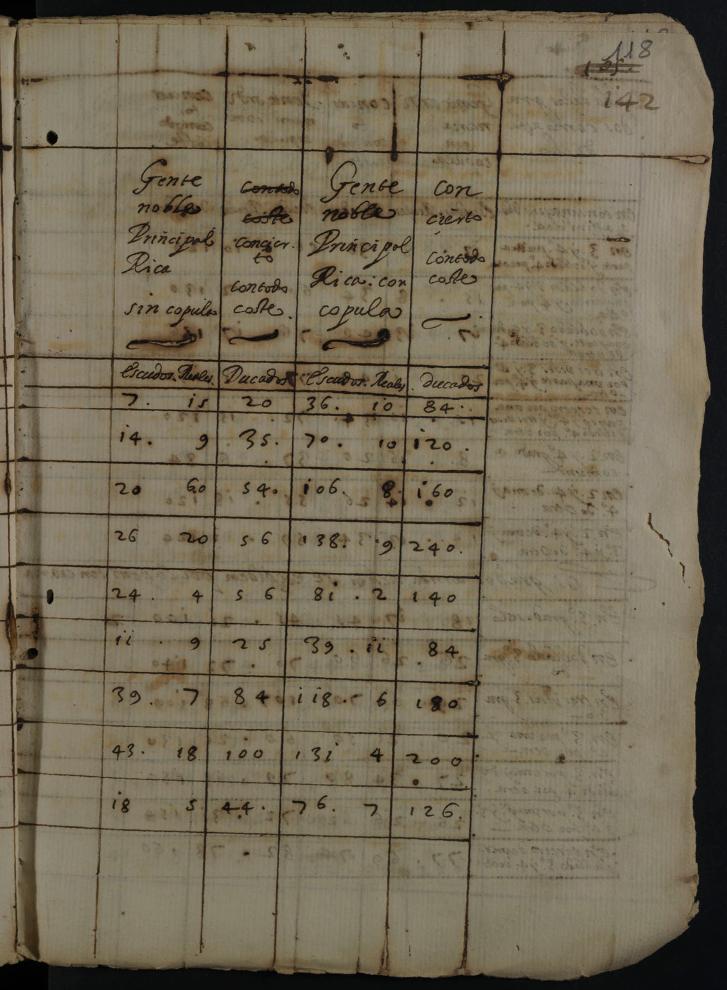 118
142
Gente noble Principal Rica sin copula
concier to contodo coste.
Gente noble Principal Rica: con copula
con cierto contodo coste
Escudos. Reales. Ducados Escudos. Reales. ducados
7. is 20 36. io 84.
i4. 9 35. 70. i0 i20.
20 60 54. i06. 8. i60
26 20 56 i38. 9 240.
24. 4 56 8i. 2 i40
ii. 9 25 39. ii 84
39. 7 84 ii8. 6 i80
43. i8 i00 i3i 4 200
i8 5 44. 76. 7 i26.